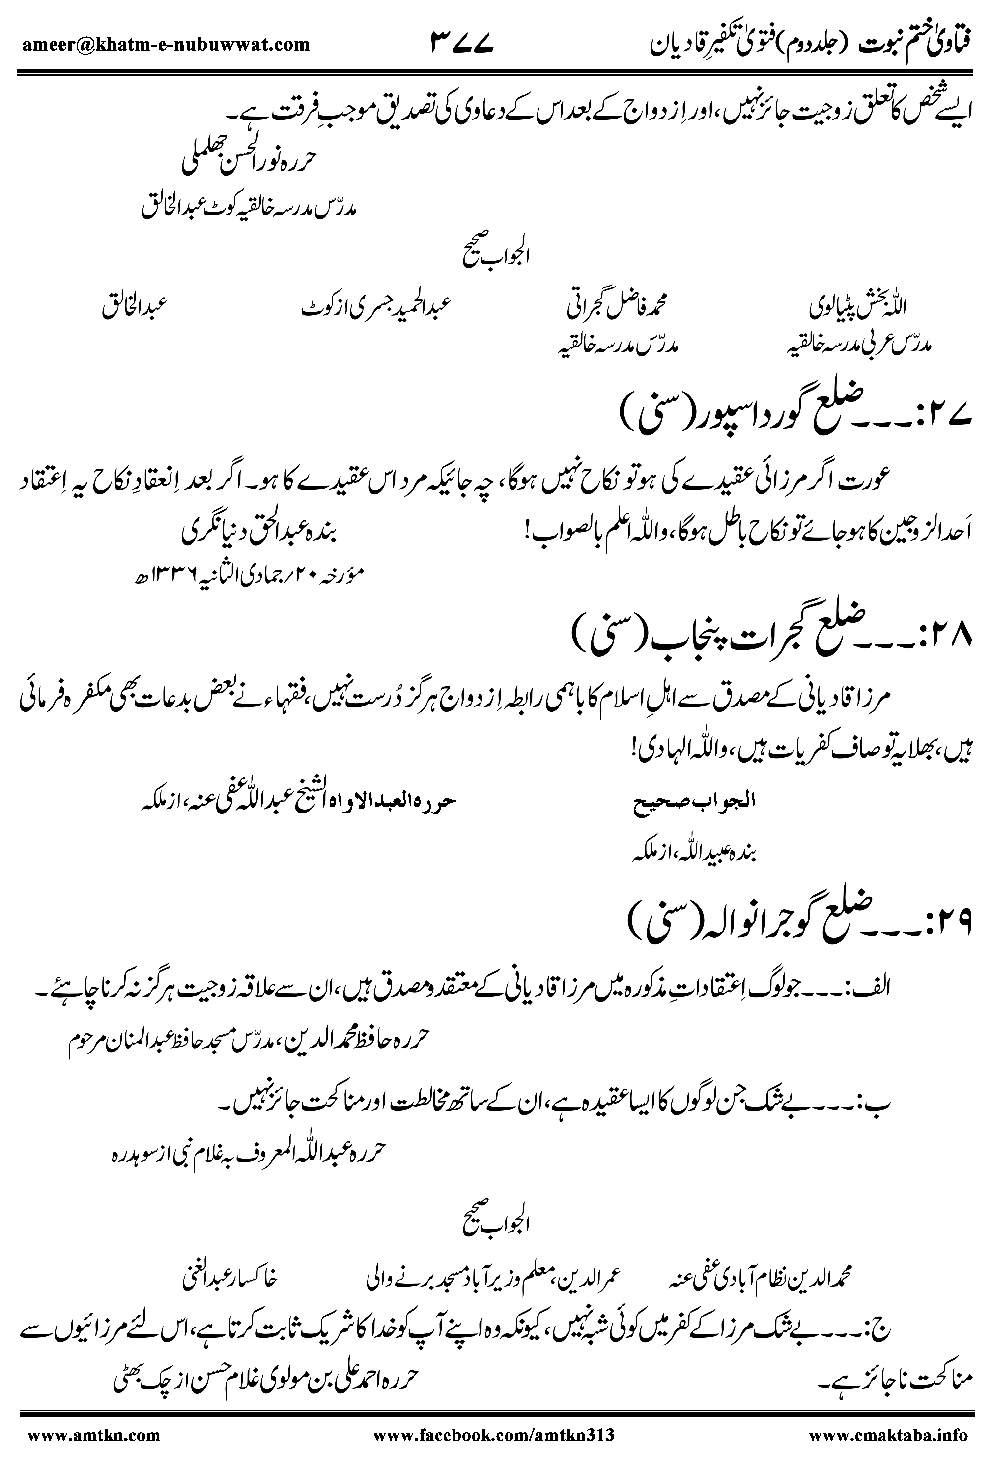 فتاویٰ ختم نبوت (جلد دوم) فتویٰ تکفیرِ قادیان ۳۷۷ ameer@khatm-e-nubuwwat.com
ایسے شخص کا تعلق زوجیت جائز نہیں، اور اِزدواج کے بعد اس کے دعاوی کی تصدیق موجبِ فرقت ہے۔
حررہ نور الحسن جھلملی
مدرّس مدرسہ خالقیہ کوٹ عبدالخالق
الجواب صحیح
اللہ بخش پٹیالوی محمد فاضل گجراتی عبدالحمید جسری از کوٹ عبدالخالق
مدرّس عربی مدرسہ خالقیہ مدرّس مدرسہ خالقیہ
۲۷:۔۔۔ ضلع گورداسپور (سنی)
عورت اگر مرزائی عقیدے کی ہو تو نکاح نہیں ہوگا، چہ جائیکہ مرد اس عقیدے کا ہو۔ اگر بعد اِنعقادِ نکاح یہ اِعتقاد
اَحدالزوجین کا ہوجائے تو نکاح باطل ہوگا، واللہ اعلم بالصواب! بندہ عبدالحق دنیانگری
مؤرخہ ۲۰؍جمادی الثانیہ ۱۳۳۶ھ
۲۸:۔۔۔ ضلع گجرات پنجاب (سنی)
مرزا قادیانی کے مصدق سے اہلِ اسلام کا باہمی رابطہ اِزدواج ہرگز دُرست نہیں، فقہاء نے بعض بدعات بھی مکفرہ فرمائی
ہیں، بھلا یہ تو صاف کفریات ہیں، واللہ الہادی!
الجواب صحیح حررہ العبد الاواہ الشیخ عبداللہ عفی عنہ، از ملکہ
بندہ عبیداللہ، از ملکہ
۲۹:۔۔۔ ضلع گوجرانوالہ (سنی)
الف:۔۔۔ جو لوگ اِعتقاداتِ مذکورہ میں مرزا قادیانی کے معتقد و مصدق ہیں، ان سے علاقہ زوجیت ہرگز نہ کرنا چاہئے۔
حررہ حافظ محمد الدین، مدرّس مسجد حافظ عبدالمنان مرحوم
ب:۔۔۔ بے شک جن لوگوں کا ایسا عقیدہ ہے، ان کے ساتھ مخالطت اور مناکحت جائز نہیں۔
حررہ عبداللہ المعروف بہ غلام نبی از سوہدرہ
الجواب صحیح
محمد الدین نظام آبادی عفی عنہ عمر الدین، معلم وزیر آباد مسجد برنے والی خاکسار عبدالغنی
ج:۔۔۔ بے شک مرزا کے کفر میں کوئی شبہ نہیں، کیونکہ وہ اپنے آپ کو خدا کا شریک ثابت کرتا ہے، اس لئے مرزائیوں سے
مناکحت ناجائز ہے۔ حررہ احمد علی بن مولوی غلام حسن از چک بھٹی
www.amtkn.com www.facebook.com/amtkn313 www.cmaktaba.info